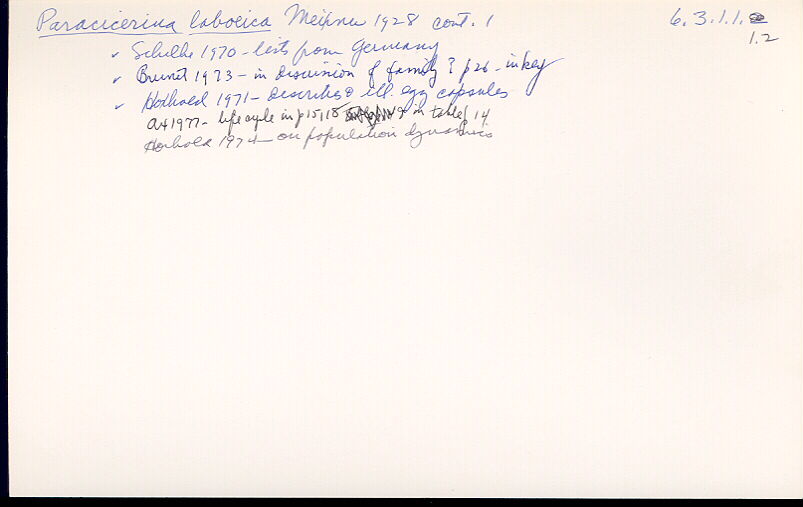 Paracicerina laboeica Meixner 1928 cont. 1
6.3.1.1.
1.2
✓ Schilke 1970 - lists from Germany
✓ Brunet 1973 - in discussion of family & p 26 - in key
✓ Hoxhold 1971 - describes & ill. egg capsules
Ax 1977 - life cycle in p 15, 18 in table 14
Hoxhold 1974 - on population dynamics